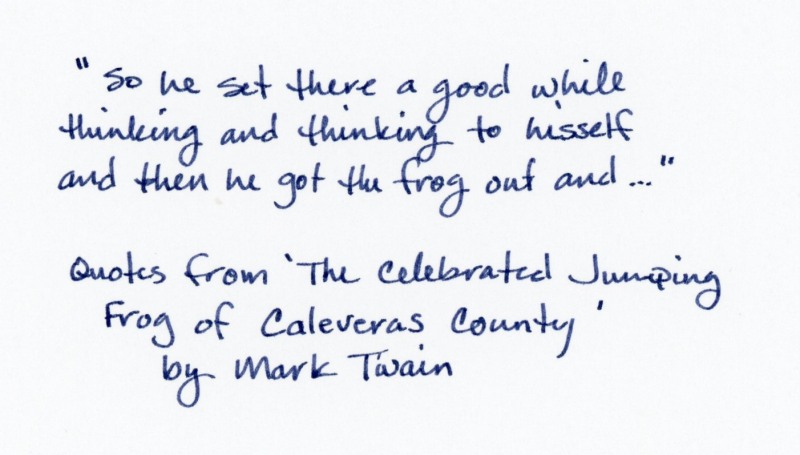 "So he set there a good while
thinking and thinking to hisself
and then he got the frog out and ..."
Quotes from 'The Celebrated Jumping
Frog of Caleveras County'
by Mark Twain